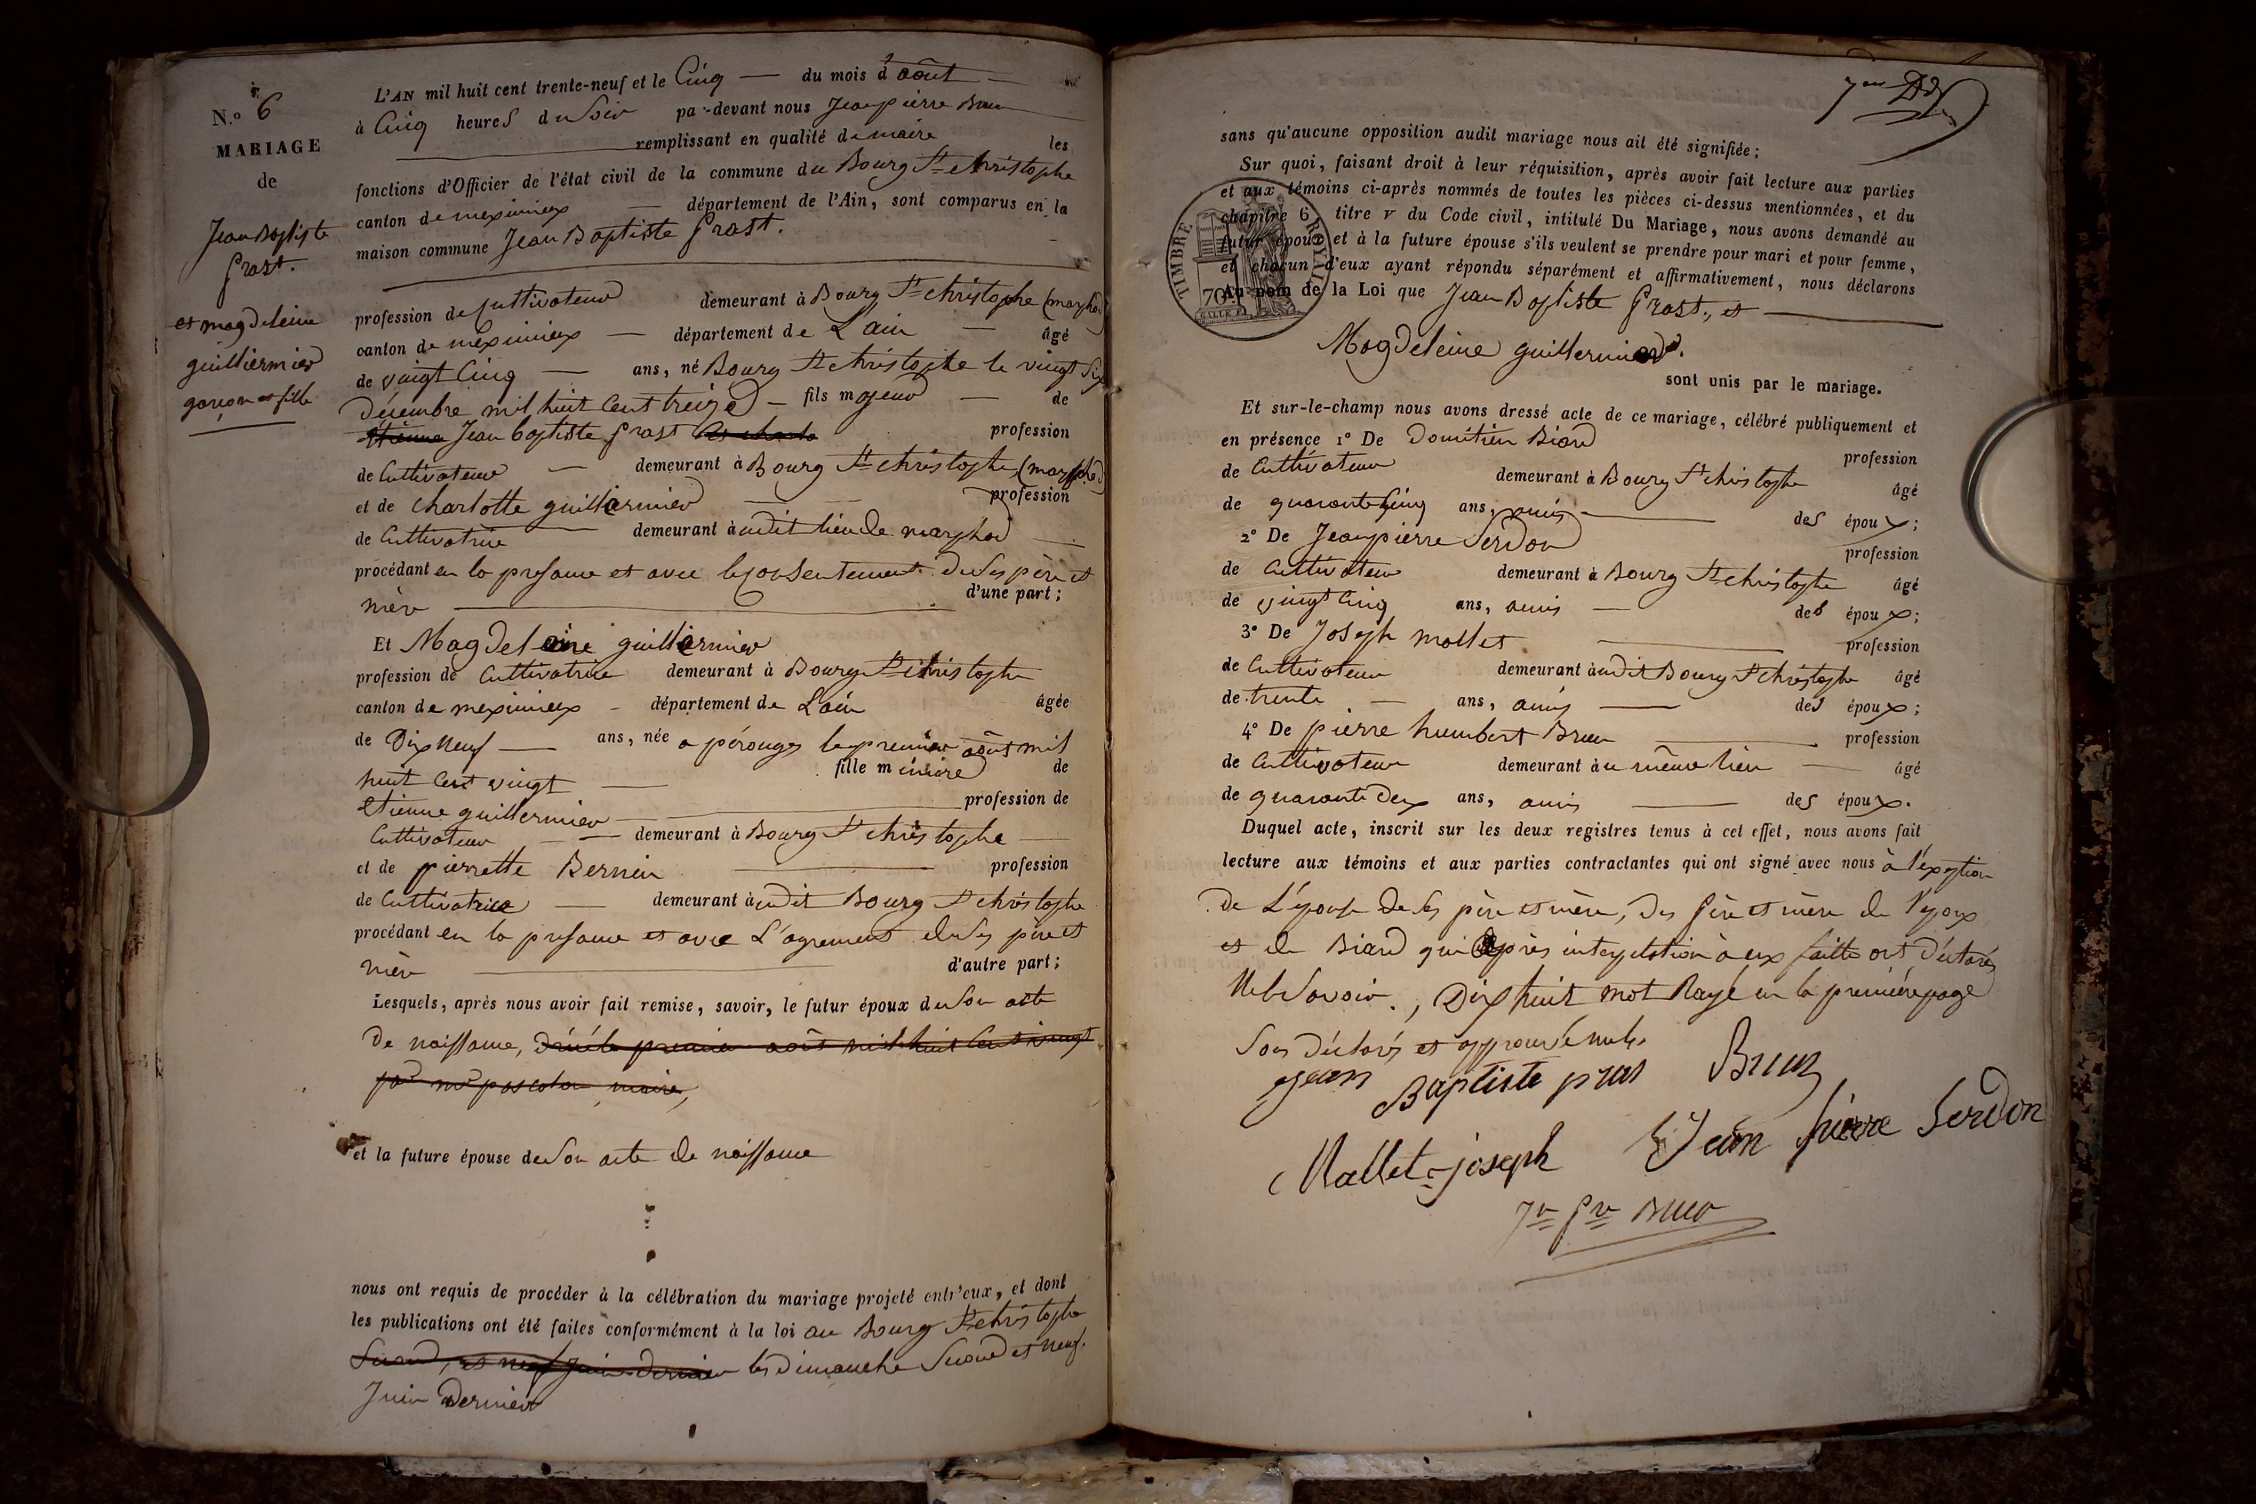 N.o 6
MARIAGE
de
Jean Baptiste
Prost.
et magdeleine
guilliermier
garçon et fille
L'AN mil huit cent trente-neuf et le Cinq — du mois d'août —
à Cinq heures du Soir par-devant nous Jean pierre Brun
remplissant en qualité de maire les
fonctions d'Officier de l'état civil de la commune du Bourg St christophe
canton de meximieux — département de l'Ain, sont comparus en la
maison commune Jean Baptiste Prost.
profession de Cultivateur demeurant à Bourg St christophe (marfhod)
canton de meximieux — département de L'ain — âgé
de vingt Cinq — ans, né Bourg St christophe le vingt Six
décembre mil huit Cent treize — fils majeur — de
étienne Jean baptiste prost profession
de Cultivateur — demeurant à Bourg St christophe (marfhod)
et de Charlotte guilliermier — profession
de Cultivatrice demeurant à udit lieu de marfhod —
procédant en la présence et avec le consentement de Ses père et
mère — d'une part ;
Et Magdeleine guilliermier
profession de Cultivatrice demeurant à Bourg St christophe
canton de meximieux - département de L'ain âgée
de Dix Neuf — ans, née a pérouges le premier août mil
huit Cent vingt — fille mineure de
étienne guilliermier — profession de
Cultivateur — demeurant à Bourg St christophe —
et de pierrette Bernin — profession
de Cultivatrice — demeurant à udit Bourg St christophe
procédant en la présence et avec L'agrément de Ses père et
mère — d'autre part ;
Lesquels, après nous avoir fait remise, savoir, le futur époux de Son acte
de naissance, premier août mil huit Cent vingt
par mr maire,
et la future épouse de Son acte de naissance
nous ont requis de procéder à la célébration du mariage projeté entr'eux, et dont
les publications ont été faites conformément à la loi au Bourg St christophe
Second, et neuf juin dernier les dimanche Second et neuf.
Juin Dernier
sans qu'aucune opposition audit mariage nous ait été signifiée ;
Sur quoi, faisant droit à leur réquisition, après avoir fait lecture aux parties
et aux témoins ci-après nommés de toutes les pièces ci-dessus mentionnées, et du
chapitre 6, titre V du Code civil, intitulé Du Mariage, nous avons demandé au
futur époux et à la future épouse s'ils veulent se prendre pour mari et pour femme,
et chacun d'eux ayant répondu séparément et affirmativement, nous déclarons
Au nom de la Loi que Jean Baptiste Prost, et —
TIMBRE ROYAL
70
Magdeleine guillermier.
sont unis par le mariage.
Et sur-le-champ nous avons dressé acte de ce mariage, célébré publiquement et
en présence 1° De Domitien Biard
profession
de Cultivateur demeurant à Bourg St christophe âgé
de quarante Cinq ans, amis — des époux ;
2° De Jean pierre Serdon
profession
de Cultivateur demeurant à Bourg St christophe âgé
de vingt Cinq ans, amis — des époux ;
3° De Joseph mollet — profession
de Cultivateur demeurant à udit Bourg St christophe âgé
de trente — ans, amis — des époux ;
4° De pierre humbert Brun — profession
de Cultivateur demeurant à u même lieu — âgé
de quarante deux ans, amis — des époux.
Duquel acte, inscrit sur les deux registres tenus à cet effet, nous avons fait
lecture aux témoins et aux parties contractantes qui ont signé avec nous à l'exeption
de L'épouse de Ses père et mère, des père et mère de l'époux
et de Biard qui après interpellation à eux faitte ont déclarés
Ne le Savoir., Dix huit mot Rayé en la première page
Sont déclarés et approuvé nuls.
jean Baptiste pras Brun
Mallet joseph Jean pierre Serdon
Jn Prre Brun